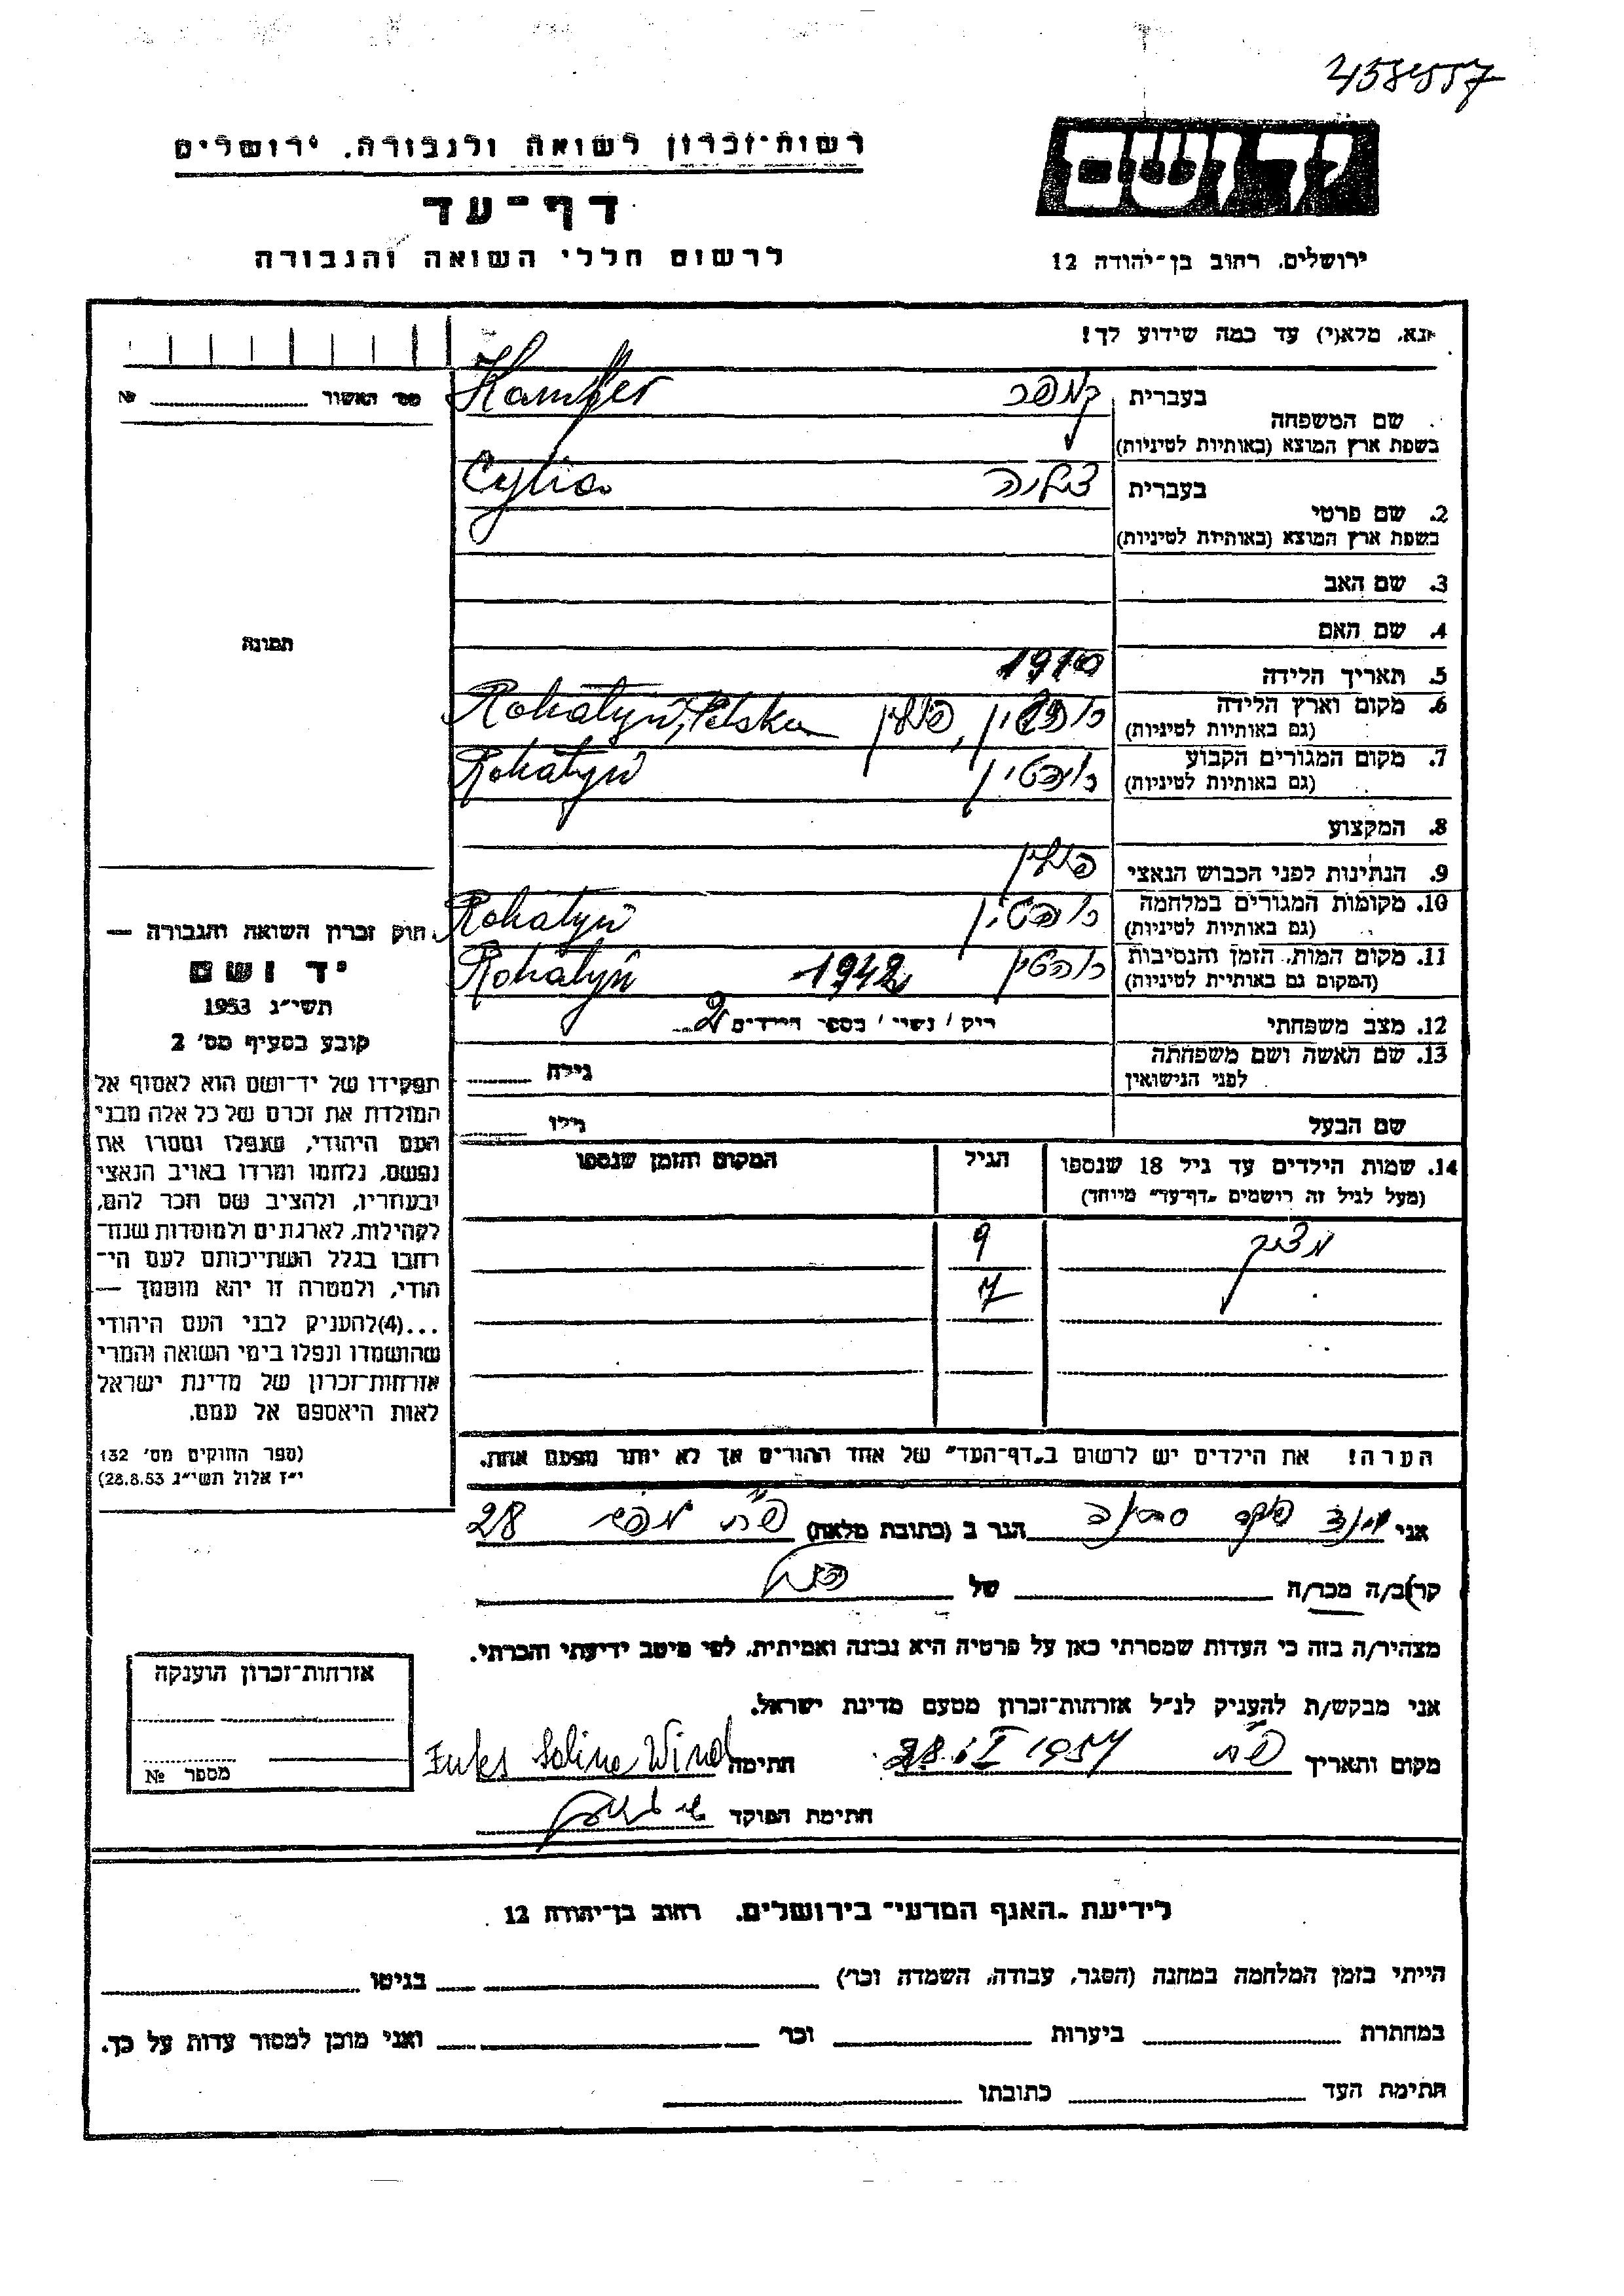 458557
רשות־זכרון לשואה ולגבורה. ירושלים
יד ושם
דף־עד
לרשום חללי השואה והגבורה
ירושלים. רחוב בן־יהודה 12
נא, מלא(י) עד כמה שידוע לך!
מס׳ האשור № 
בעברית קמפר Kamfer
שם המשפחה
בשפת ארץ המוצא (באותיות לטיניות)
בעברית צליה Cylia
2. שם פרטי
בשפת ארץ המוצא (באותיות לטיניות)
3. שם האב
4. שם האם
תמונה
5. תאריך הלידה 1910
6. מקום וארץ הלידה רוהטין, פולין Rohatyń, Polska
(גם באותיות לטיניות)
7. מקום המגורים הקבוע רוהטין Rohatyń
(גם באותיות לטיניות)
8. המקצוע
9. הנתינות לפני הכבוש הנאצי פולין
10. מקומות המגורים במלחמה רוהטין Rohatyń
(גם באותיות לטיניות)
11. מקום המות, הזמן והנסיבות רוהטין 1942 Rohatyń
(המקום גם באותיות לטיניות)
12. מצב משפחתי רוק / נשוי / מספר הילדים 2
13. שם האשה ושם משפחתה גילה
לפני הנישואין
שם הבעל גילו
14. שמות הילדים עד גיל 18 שנספו הגיל המקום והזמן שנספו
(מעל לגיל זה רושמים „דף־עד״ מיוחד)
9
7
הערה! את הילדים יש לרשום ב„דף־העד״ של אחד ההורים אך לא יותר מפעם אחת.
חוק זכרון השואה והגבורה —
יד ושם
תשי״ג 1953
קובע בסעיף מס׳ 2
תפקידו של יד־ושם הוא לאסוף אל
המולדת את זכרם של כל אלה מבני
העם היהודי, שנפלו ומסרו את
נפשם, נלחמו ומרדו באויב הנאצי
ובעוזריו, ולהציב שם וזכר להם,
לקהילות, לארגונים ולמוסדות שנח־
רבו בגלל השתייכותם לעם הי־
הודי, ולמטרה זו יהא מוסמך —
...(4) להעניק לבני העם היהודי
שהושמדו ונפלו בימי השואה והמרי
אזרחות־זכרון של מדינת ישראל
לאות היאספם אל עמם.
(ספר החוקים מס׳ 132
י״ז אלול תשי״ג 28.8.53)
אני וינד פוקס הגר ב (כתובת מלאה) 28
קרוב/ה מכר/ה של
מצהיר/ה בזה כי העדות שמסרתי כאן על פרטיה היא נכונה ואמיתית, לפי מיטב ידיעתי והכרתי.
אני מבקש/ת להעניק לנ״ל אזרחות־זכרון מטעם מדינת ישראל.
מקום ותאריך 1957 חתימה Fuks Wind
חתימת הפוקד
אזרחות־זכרון הוענקה
מספר №
לידיעת „האגף המדעי״ בירושלים. רחוב בן־יהודה 12
הייתי בזמן המלחמה במחנה (הסגר, עבודה, השמדה וכו׳) בגיטו
במחתרת ביערות וכו׳ ואני מוכן למסור עדות על כך.
חתימת העד כתובתו